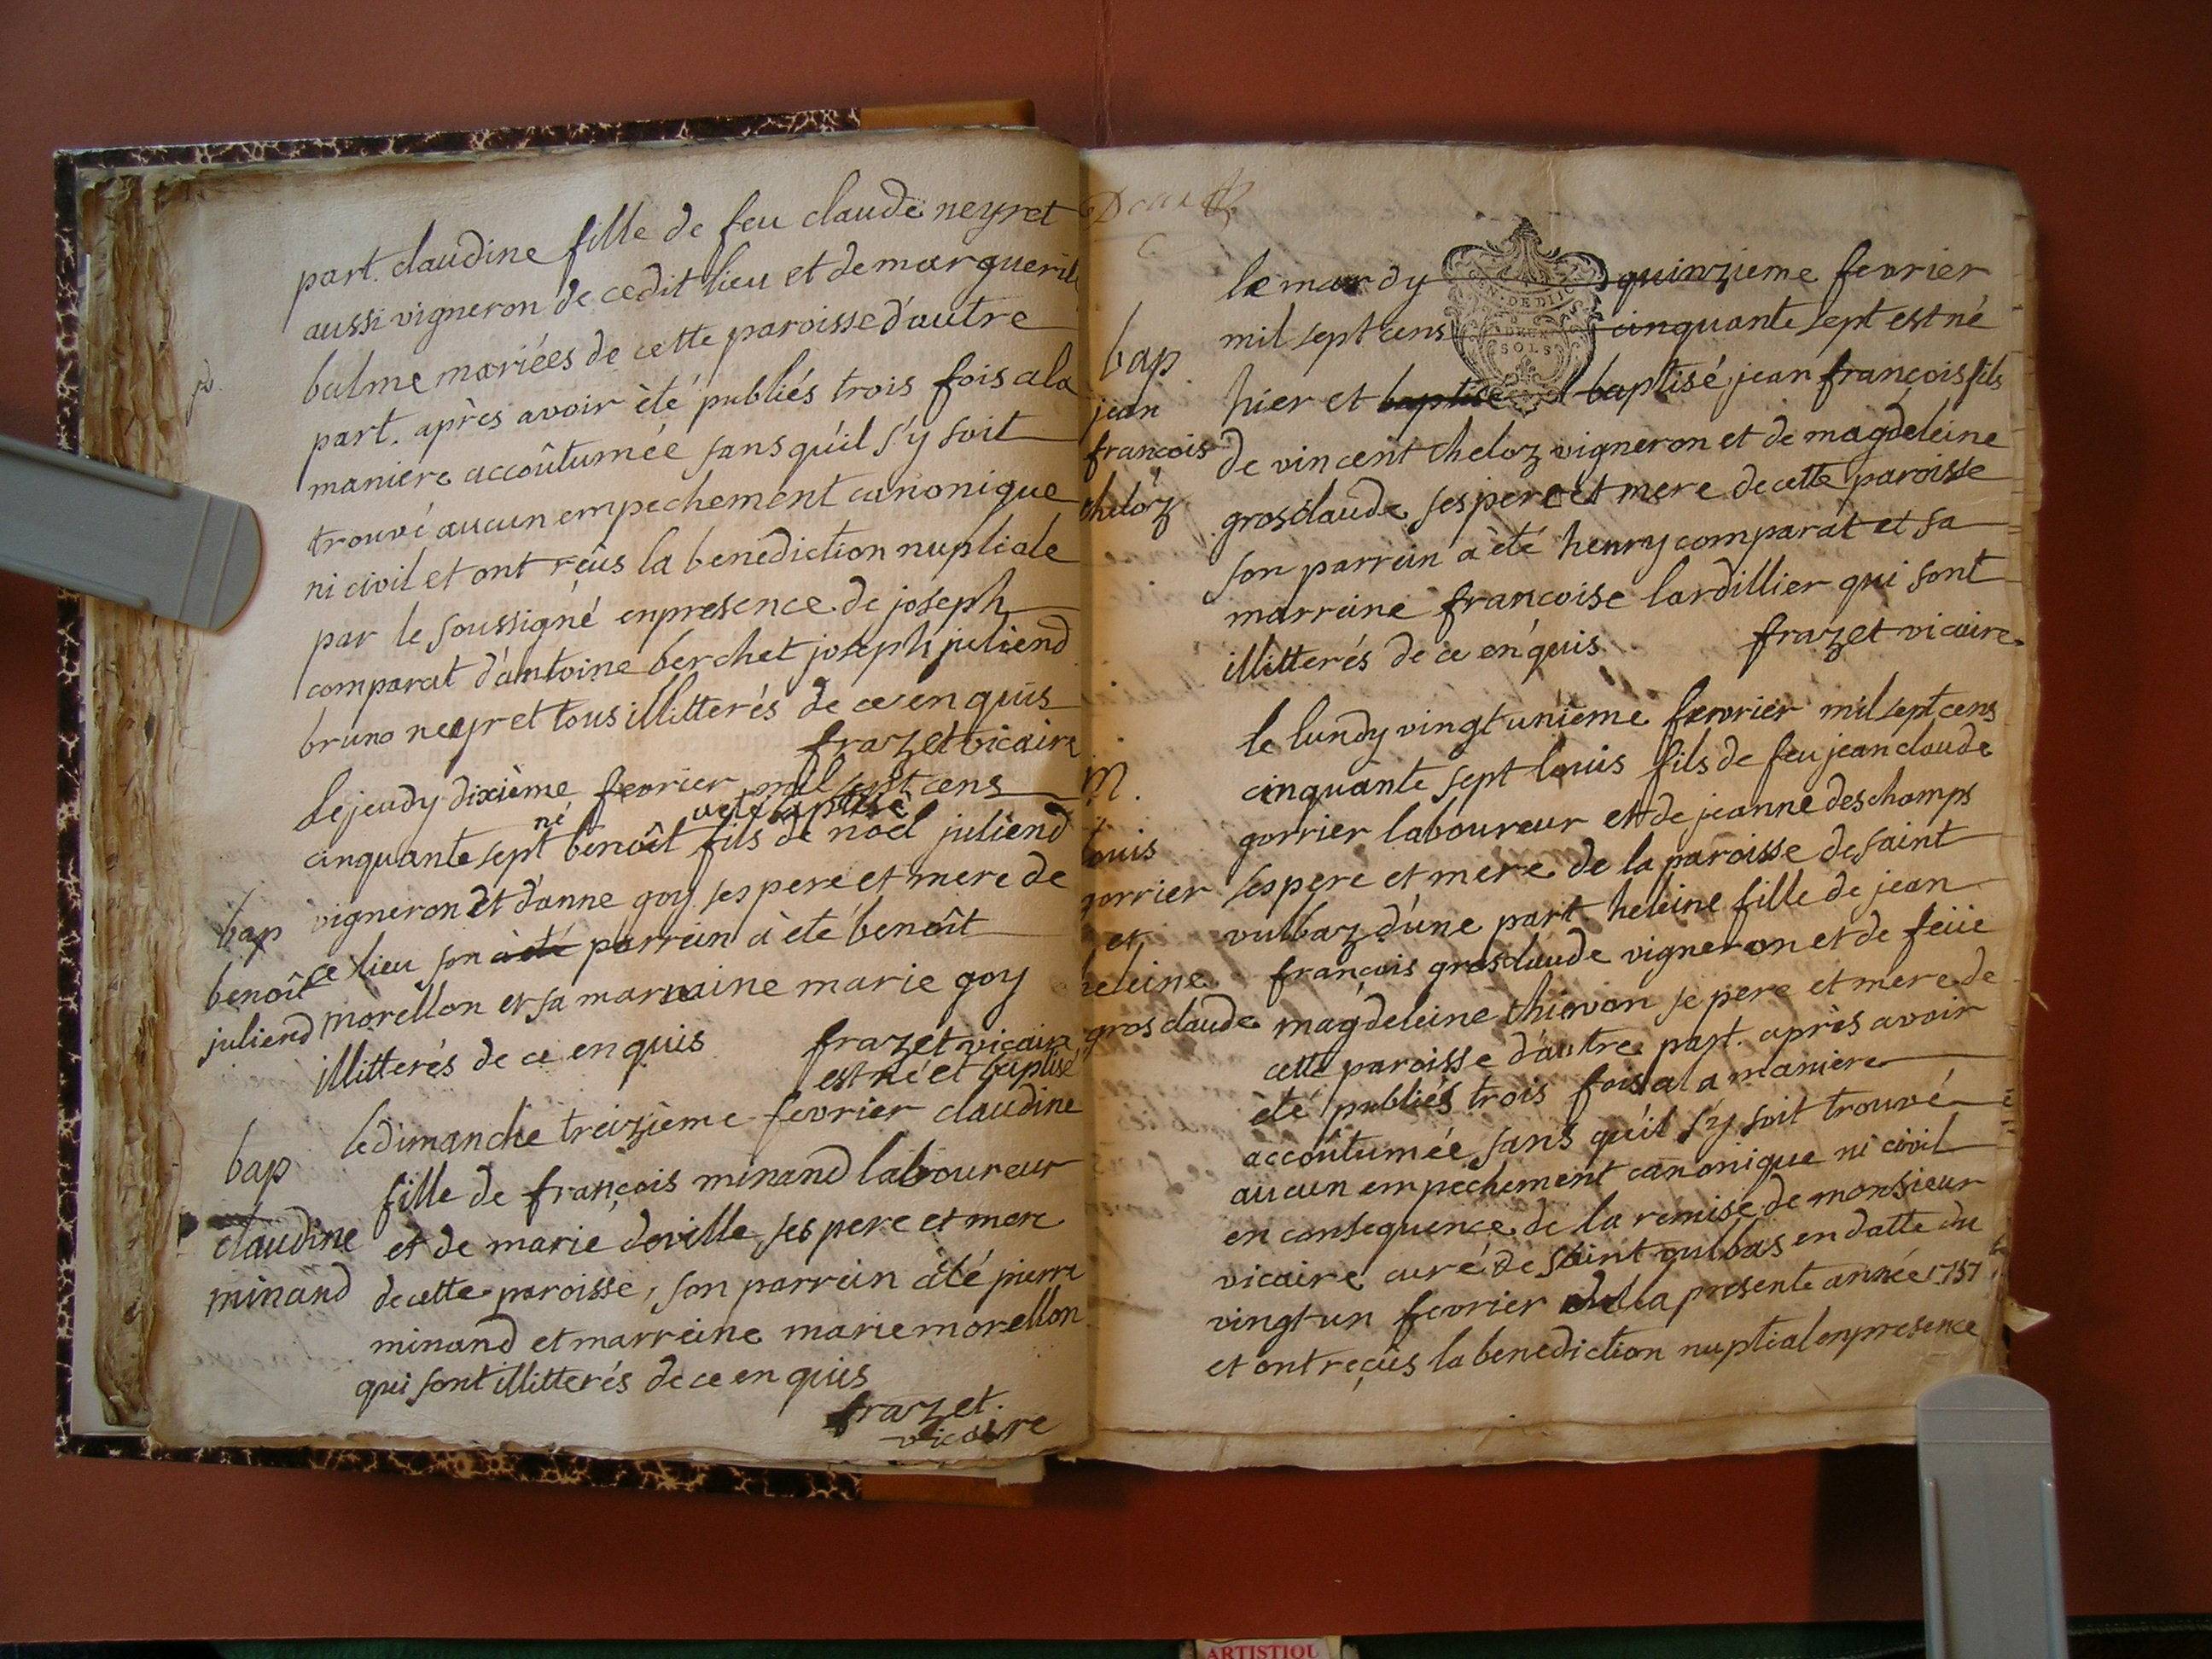 part. claudine fille de feu claude neyret
aussi vigneron de cedit lieu et de marguerite
balme mariées de cette paroisse d'autre
part. après avoir èté publiés trois fois a la
maniere accoûtumée sans qu'il s'y soit
trouvé aucun empechement canonique
ni civil et ont reçûs la benediction nuptiale
par le soussigné en presence de joseph
comparat d'antoine berchet joseph juliend
bruno neyret tous illitterés de ce en quis
frazet vicaire
bap
benoît
juliend
le jeudy dixième fevrier mil sept cens
né a eté baptisé
cinquante sept benoît fils de noël juliend
vigneron et d'anne goy ses pere et mere de
ce lieu son a été parrein a èté benoît
morellon et sa marraine marie goy
illitterés de ce en quis
frazet vicaire
bap
claudine
minand
est né et baptisé
le dimanche treizième fevrier claudine
fille de françois minand laboureur
et de marie deville ses pere et mere
de cette paroisse, son parrein a èté pierre
minand et marreine marie morellon
qui sont illitterés de ce en quis
frazet
vicaire
bap
jean
francois
theloz
EN. DE DIJON
DEUX
SOLS
le mardy quinzieme fevrier
mil sept cens cinquante sept est né
hier et baptisé baptisé jean françois fils
de vincent theloz vigneron et de magdeleine
grosclaude ses pere et mere de cette paroisse
son parrein a èté henry comparat et sa
marreine francoise lardillier qui sont
illitterés de ce enquis
frazet vicaire
M.
louis
gorrier
et
heleine
grosclaude
le lundy vingt unième fevrier mil sept cens
cinquante sept louis fils de feu jean claude
gorrier laboureur et de jeanne deschamps
ses pere et mere de la paroisse de saint
vulbaz d'une part. heleine fille de jean
françois grosclaude vigneron et de feüe
magdeleine thievon se pere et mere de
cette paroisse d'autre part. après avoir
été publiés trois fois a la maniere
accoûtumée sans qu'il s'y soit trouvé
aucun empechement canonique ni civil
en consequence de la remise de monsieur
vicaire curé de saint vulbas en datte du
vingt un fevrier de la presente année 1757
et ont reçûs la benediction nuptial en presence
ARTISTIQU